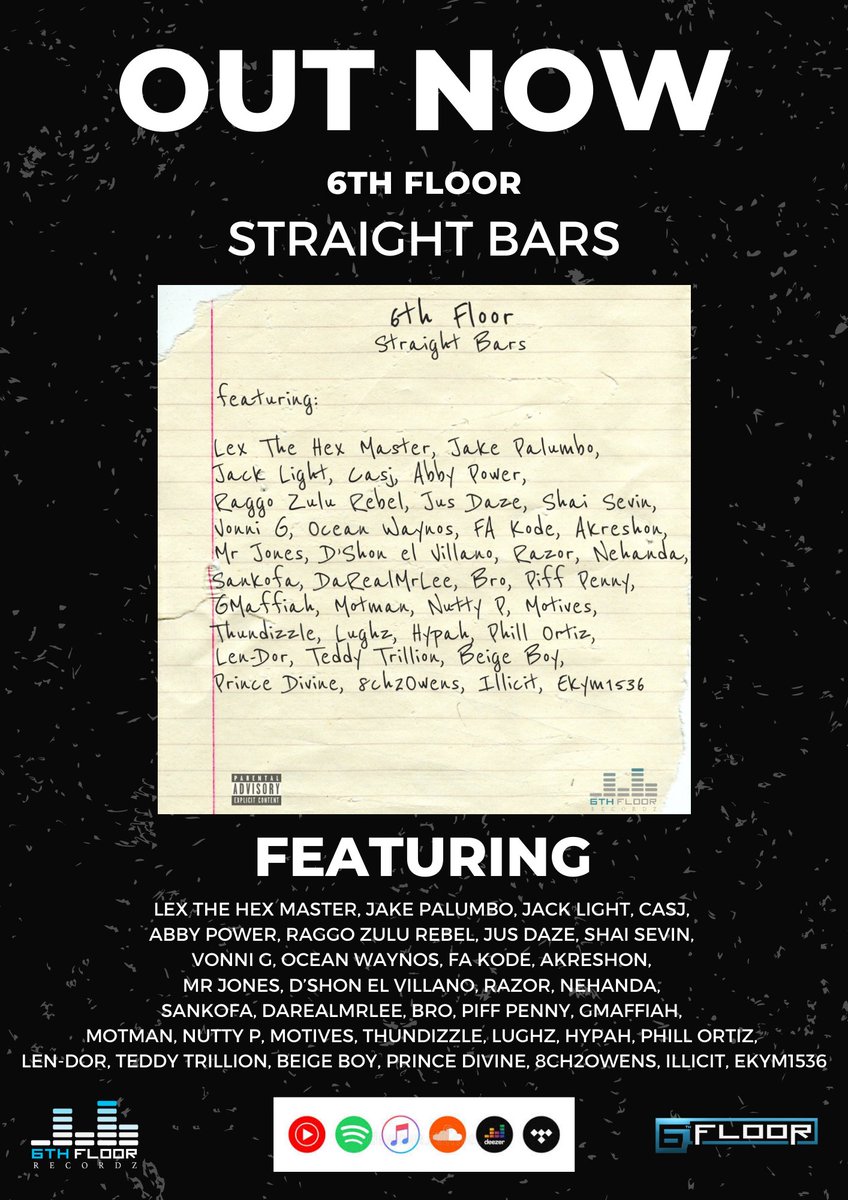 OUT NOW
6TH FLOOR
STRAIGHT BARS
6th Floor
Straight Bars
featuring:
Lex The Hex Master, Jake Palumbo,
Jack Light, Casj, Abby Power,
Raggo Zulu Rebel, Jus Daze, Shai Sevin,
Vonni G, Ocean Waynos, FA Kode, Akreshon,
Mr Jones, D'Shon el Villano, Razor, Nehanda,
Sankofa, DaRealMrLee, Bro, Piff Penny,
GMaffiah, Motman, Nutty P, Motives,
Thundizzle, Lughz, Hypah, Phill Ortiz,
Len-Dor, Teddy Trillion, Beige Boy,
Prince Divine, 8ch2Owens, Illicit, Ekym1536
PARENTAL
ADVISORY
EXPLICIT CONTENT
6TH FLOOR
RECORDZ
FEATURING
LEX THE HEX MASTER, JAKE PALUMBO, JACK LIGHT, CASJ,
ABBY POWER, RAGGO ZULU REBEL, JUS DAZE, SHAI SEVIN,
VONNI G, OCEAN WAYNOS, FA KODE, AKRESHON,
MR JONES, D’SHON EL VILLANO, RAZOR, NEHANDA,
SANKOFA, DAREALMRLEE, BRO, PIFF PENNY, GMAFFIAH,
MOTMAN, NUTTY P, MOTIVES, THUNDIZZLE, LUGHZ, HYPAH, PHILL ORTIZ,
LEN-DOR, TEDDY TRILLION, BEIGE BOY, PRINCE DIVINE, 8CH2OWENS, ILLICIT, EKYM1536
6TH FLOOR
RECORDZ
deezer
6TH FLOOR